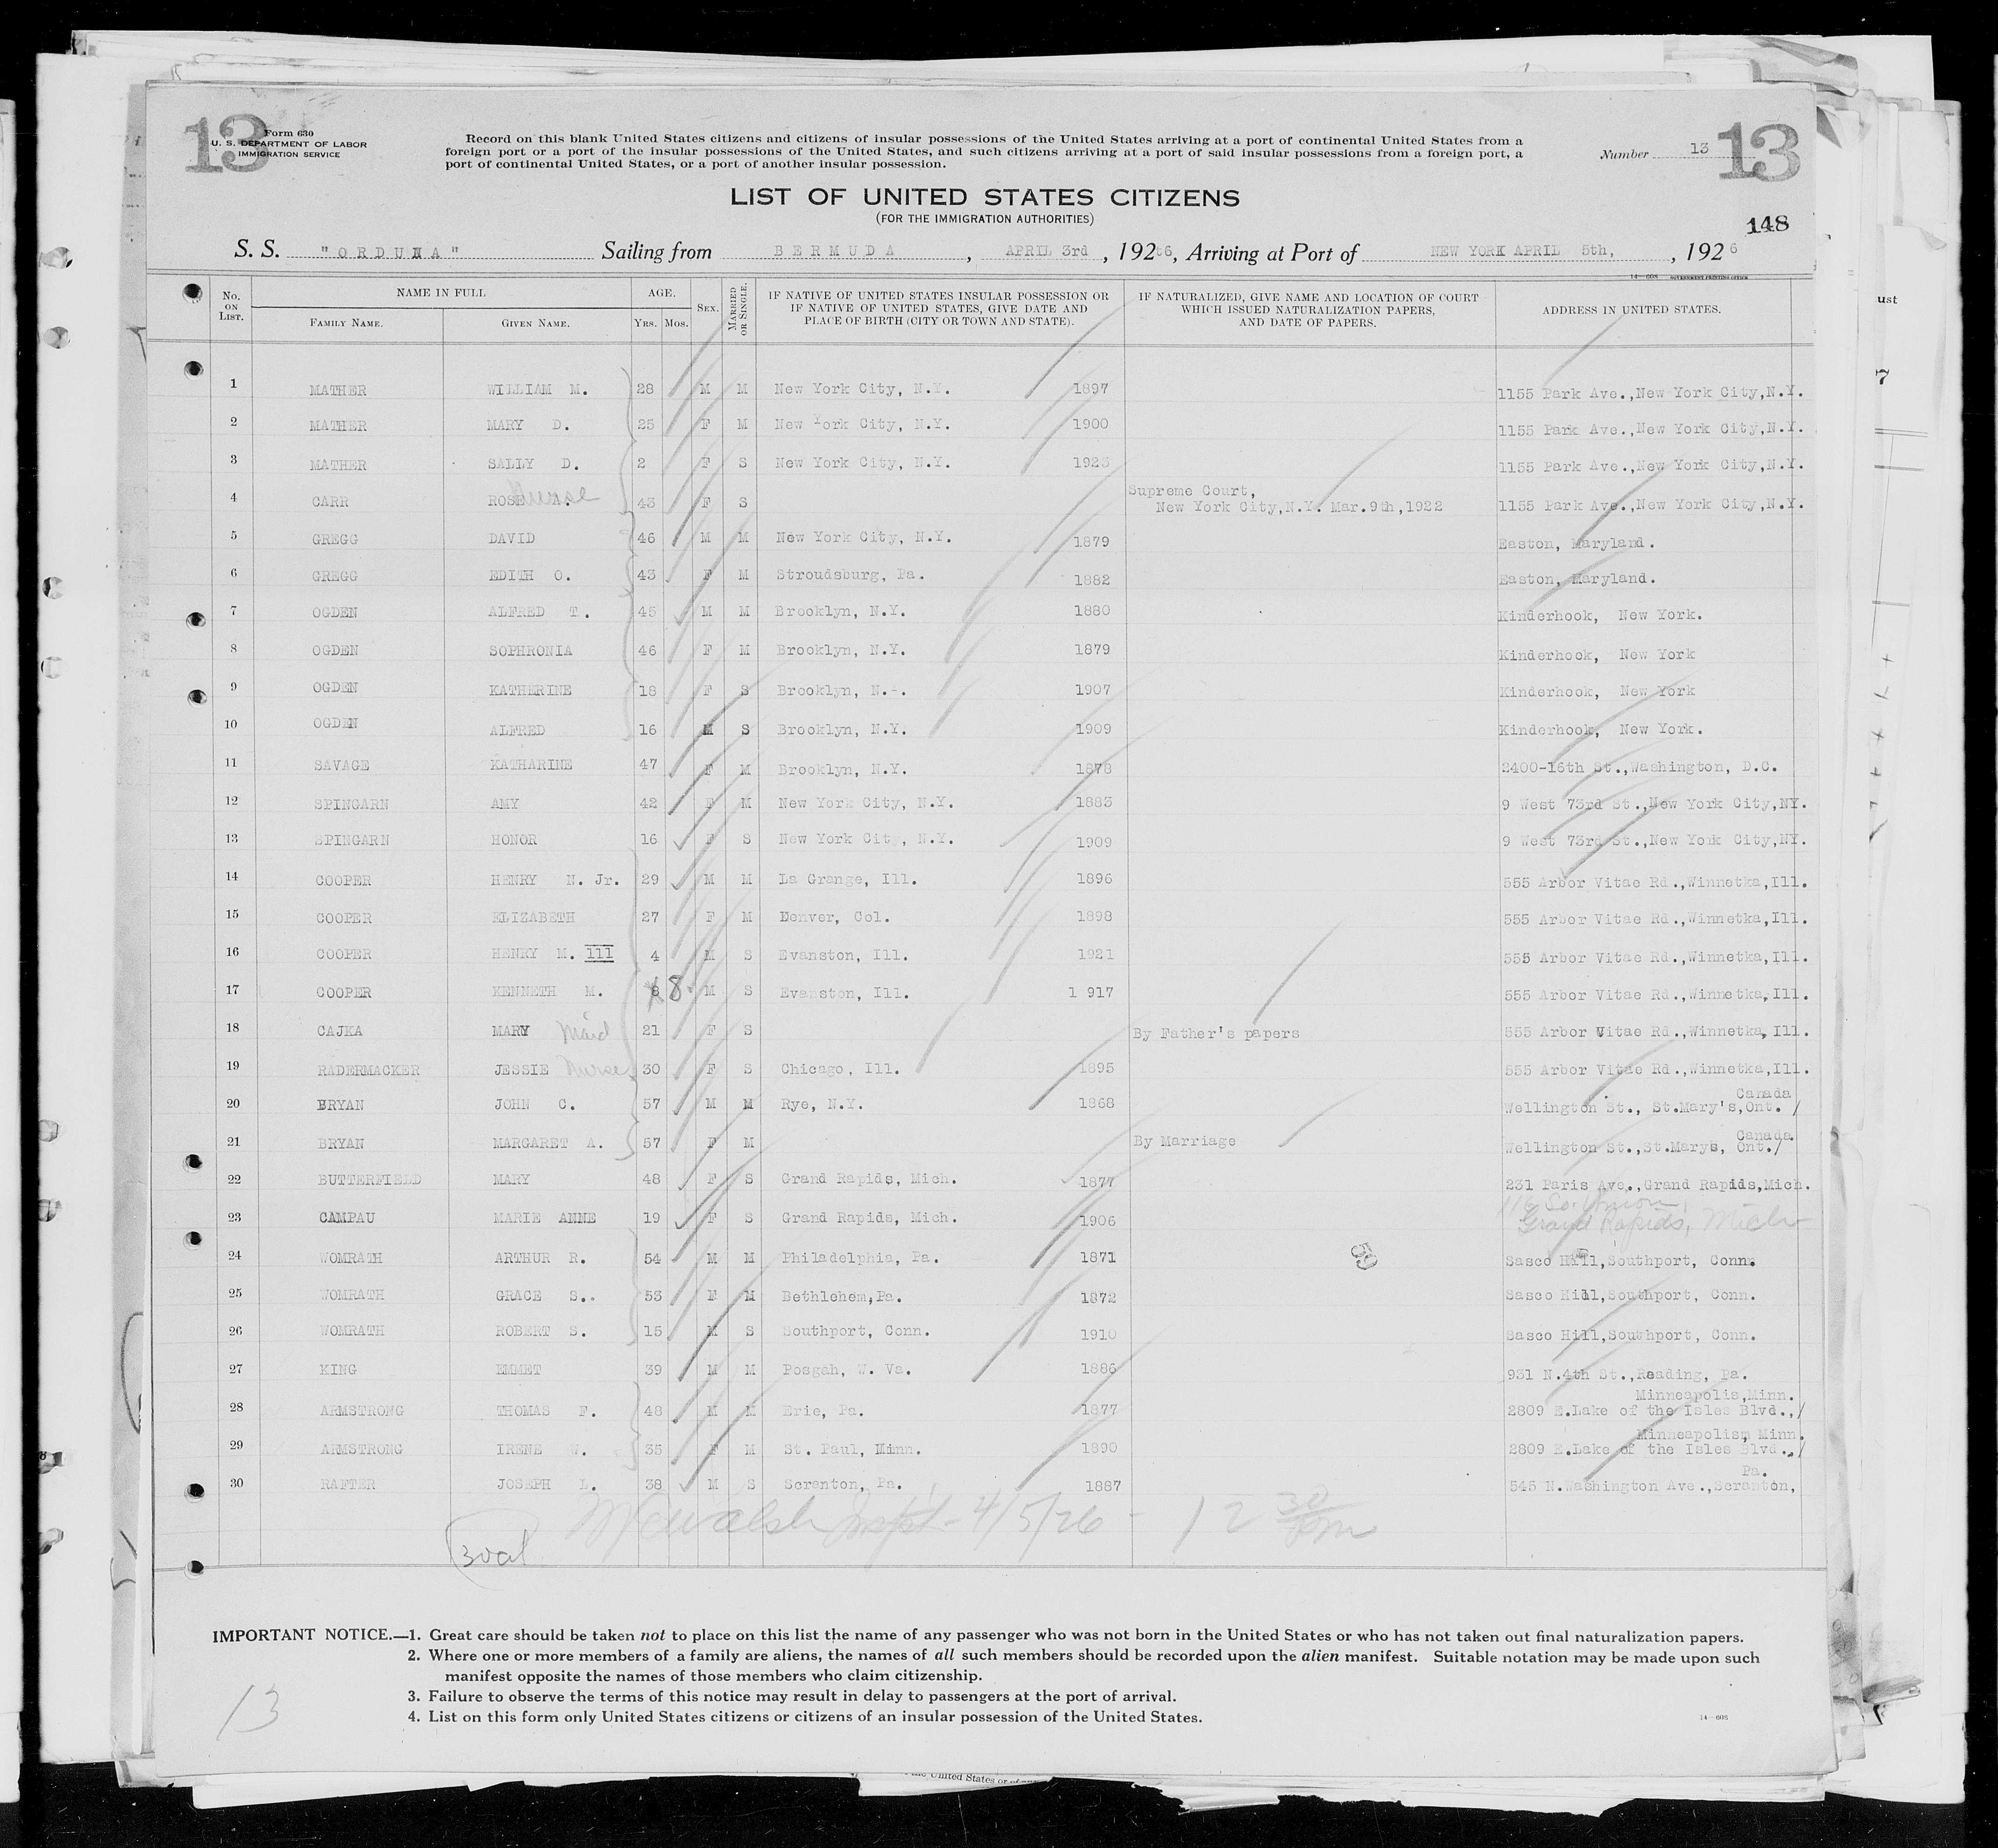 13
Form 630
U. S. DEPARTMENT OF LABOR
IMMIGRATION SERVICE
Record on this blank United States citizens and citizens of insular possessions of the United States arriving at a port of continental United States from a
foreign port or a port of the insular possessions of the United States, and such citizens arriving at a port of said insular possessions from a foreign port, a
port of continental United States, or a port of another insular possession.
Number 13
13
LIST OF UNITED STATES CITIZENS
(FOR THE IMMIGRATION AUTHORITIES)
148
S. S. "ORDUNA" Sailing from BERMUDA, APRIL 3rd, 1926, Arriving at Port of NEW YORK APRIL 5th, 1926
14—608 GOVERNMENT PRINTING OFFICE
No. ON LIST. NAME IN FULL AGE. SEX. MARRIED OR SINGLE. IF NATIVE OF UNITED STATES INSULAR POSSESSION OR IF NATIVE OF UNITED STATES, GIVE DATE AND PLACE OF BIRTH (CITY OR TOWN AND STATE). IF NATURALIZED, GIVE NAME AND LOCATION OF COURT WHICH ISSUED NATURALIZATION PAPERS, AND DATE OF PAPERS. ADDRESS IN UNITED STATES.
FAMILY NAME. GIVEN NAME. YRS. MOS.
1 MATHER WILLIAM M. 28 M M New York City, N.Y. 1897 1155 Park Ave.,New York City,N.Y.
2 MATHER MARY D. 25 F M New York City, N.Y. 1900 1155 Park Ave.,New York City,N.Y.
3 MATHER SALLY D. 2 F S New York City, N.Y. 1923 1155 Park Ave.,New York City,N.Y.
4 CARR ROSE A. Nurse 43 F S Supreme Court, New York City,N.Y. Mar.9th,1922 1155 Park Ave.,New York City,N.Y.
5 GREGG DAVID 46 M M New York City, N.Y. 1879 Easton, Maryland.
6 GREGG EDITH O. 43 F M Stroudsburg, Pa. 1882 Easton, Maryland.
7 OGDEN ALFRED T. 45 M M Brooklyn, N.Y. 1880 Kinderhook, New York.
8 OGDEN SOPHRONIA 46 F M Brooklyn, N.Y. 1879 Kinderhook, New York
9 OGDEN KATHERINE 18 F S Brooklyn, N.-. 1907 Kinderhook, New York
10 OGDEN ALFRED 16 M S Brooklyn, N.Y. 1909 Kinderhook, New York.
11 SAVAGE KATHARINE 47 F M Brooklyn, N.Y. 1878 2400-16th St.,Washington, D.C.
12 SPINGARN AMY 42 F M New York City, N.Y. 1883 9 West 73rd St.,New York City,NY.
13 SPINGARN HONOR 16 F S New York City, N.Y. 1909 9 West 73rd St.,New York City,NY.
14 COOPER HENRY N. Jr. 29 M M La Grange, Ill. 1896 555 Arbor Vitae Rd.,Winnetka,Ill.
15 COOPER ELIZABETH 27 F M Denver, Col. 1898 555 Arbor Vitae Rd.,Winnetka,Ill.
16 COOPER HENRY M. III 4 M S Evanston, Ill. 1921 555 Arbor Vitae Rd.,Winnetka,Ill.
17 COOPER KENNETH M. 8 M S Evanston, Ill. 1 917 555 Arbor Vitae Rd.,Winnetka,Ill.
18 CAJKA MARY Maid 21 F S By Father's papers 555 Arbor Vitae Rd.,Winnetka, Ill.
19 RADERMACKER JESSIE Nurse 30 F S Chicago, Ill. 1895 555 Arbor Vitae Rd.,Winnetka,Ill.
20 BRYAN JOHN C. 57 M M Rye, N.Y. 1868 Wellington St., St.Mary's,Ont. / Canada
21 BRYAN MARGARET A. 57 F M By Marriage Wellington St.,St.Marys, Ont./ Canada.
22 BUTTERFIELD MARY 48 F S Grand Rapids, Mich. 1877 231 Paris Ave.,Grand Rapids,Mich.
23 CAMPAU MARIE ANNE 19 F S Grand Rapids, Mich. 1906 116 So. Union, Grand Rapids, Mich
24 WOMRATH ARTHUR R. 54 M M Philadelphia, Pa. 1871 59 Sasco Hill,Southport, Conn.
25 WOMRATH GRACE S.. 53 F M Bethlehem,Pa. 1872 Sasco Hill,Southport, Conn.
26 WOMRATH ROBERT S. 15 M S Southport, Conn. 1910 Sasco Hill,Southport, Conn.
27 KING EMMET 39 M M Posgah, W. Va. 1886 931 N.4th St.,Reading, Pa.
28 ARMSTRONG THOMAS F. 48 M M Erie, Pa. 1877 2809 E.Lake of the Isles Blvd.,/ Minneapolis,Minn.
29 ARMSTRONG IRENE W. 35 F M St. Paul, Minn. 1890 2809 E.Lake of the Isles Blvd.,/ Minneapolis, Minn.
30 RAFTER JOSEPH L. 38 M S Scranton, Pa. 1887 545 N.Washington Ave.,Scranton, Pa.
Walsh Inspt - 4/5/26 - 12 30 pm
IMPORTANT NOTICE.—1. Great care should be taken not to place on this list the name of any passenger who was not born in the United States or who has not taken out final naturalization papers.
2. Where one or more members of a family are aliens, the names of all such members should be recorded upon the alien manifest. Suitable notation may be made upon such
manifest opposite the names of those members who claim citizenship.
3. Failure to observe the terms of this notice may result in delay to passengers at the port of arrival.
4. List on this form only United States citizens or citizens of an insular possession of the United States.
14—608
13